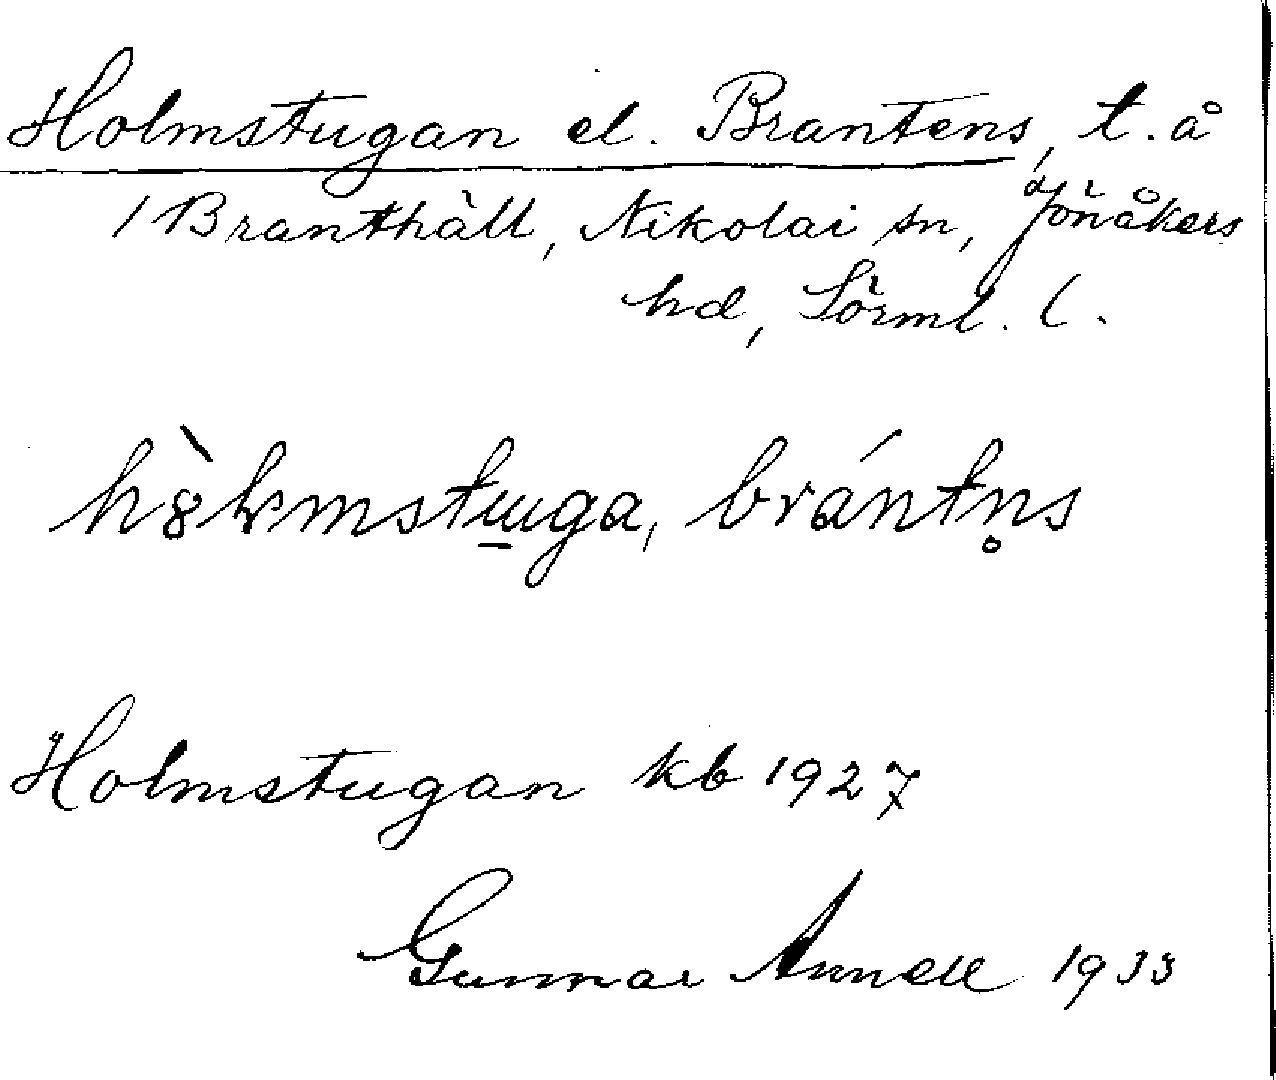 Holmstugan el. Brantens, t. å
1 Branthäll, Nikolai sn, Jönåkers
hd, Sörml. l.
hò̱lmstuga, brántn̥s
Holmstugan kb 1927
Gunnar Annell 1933